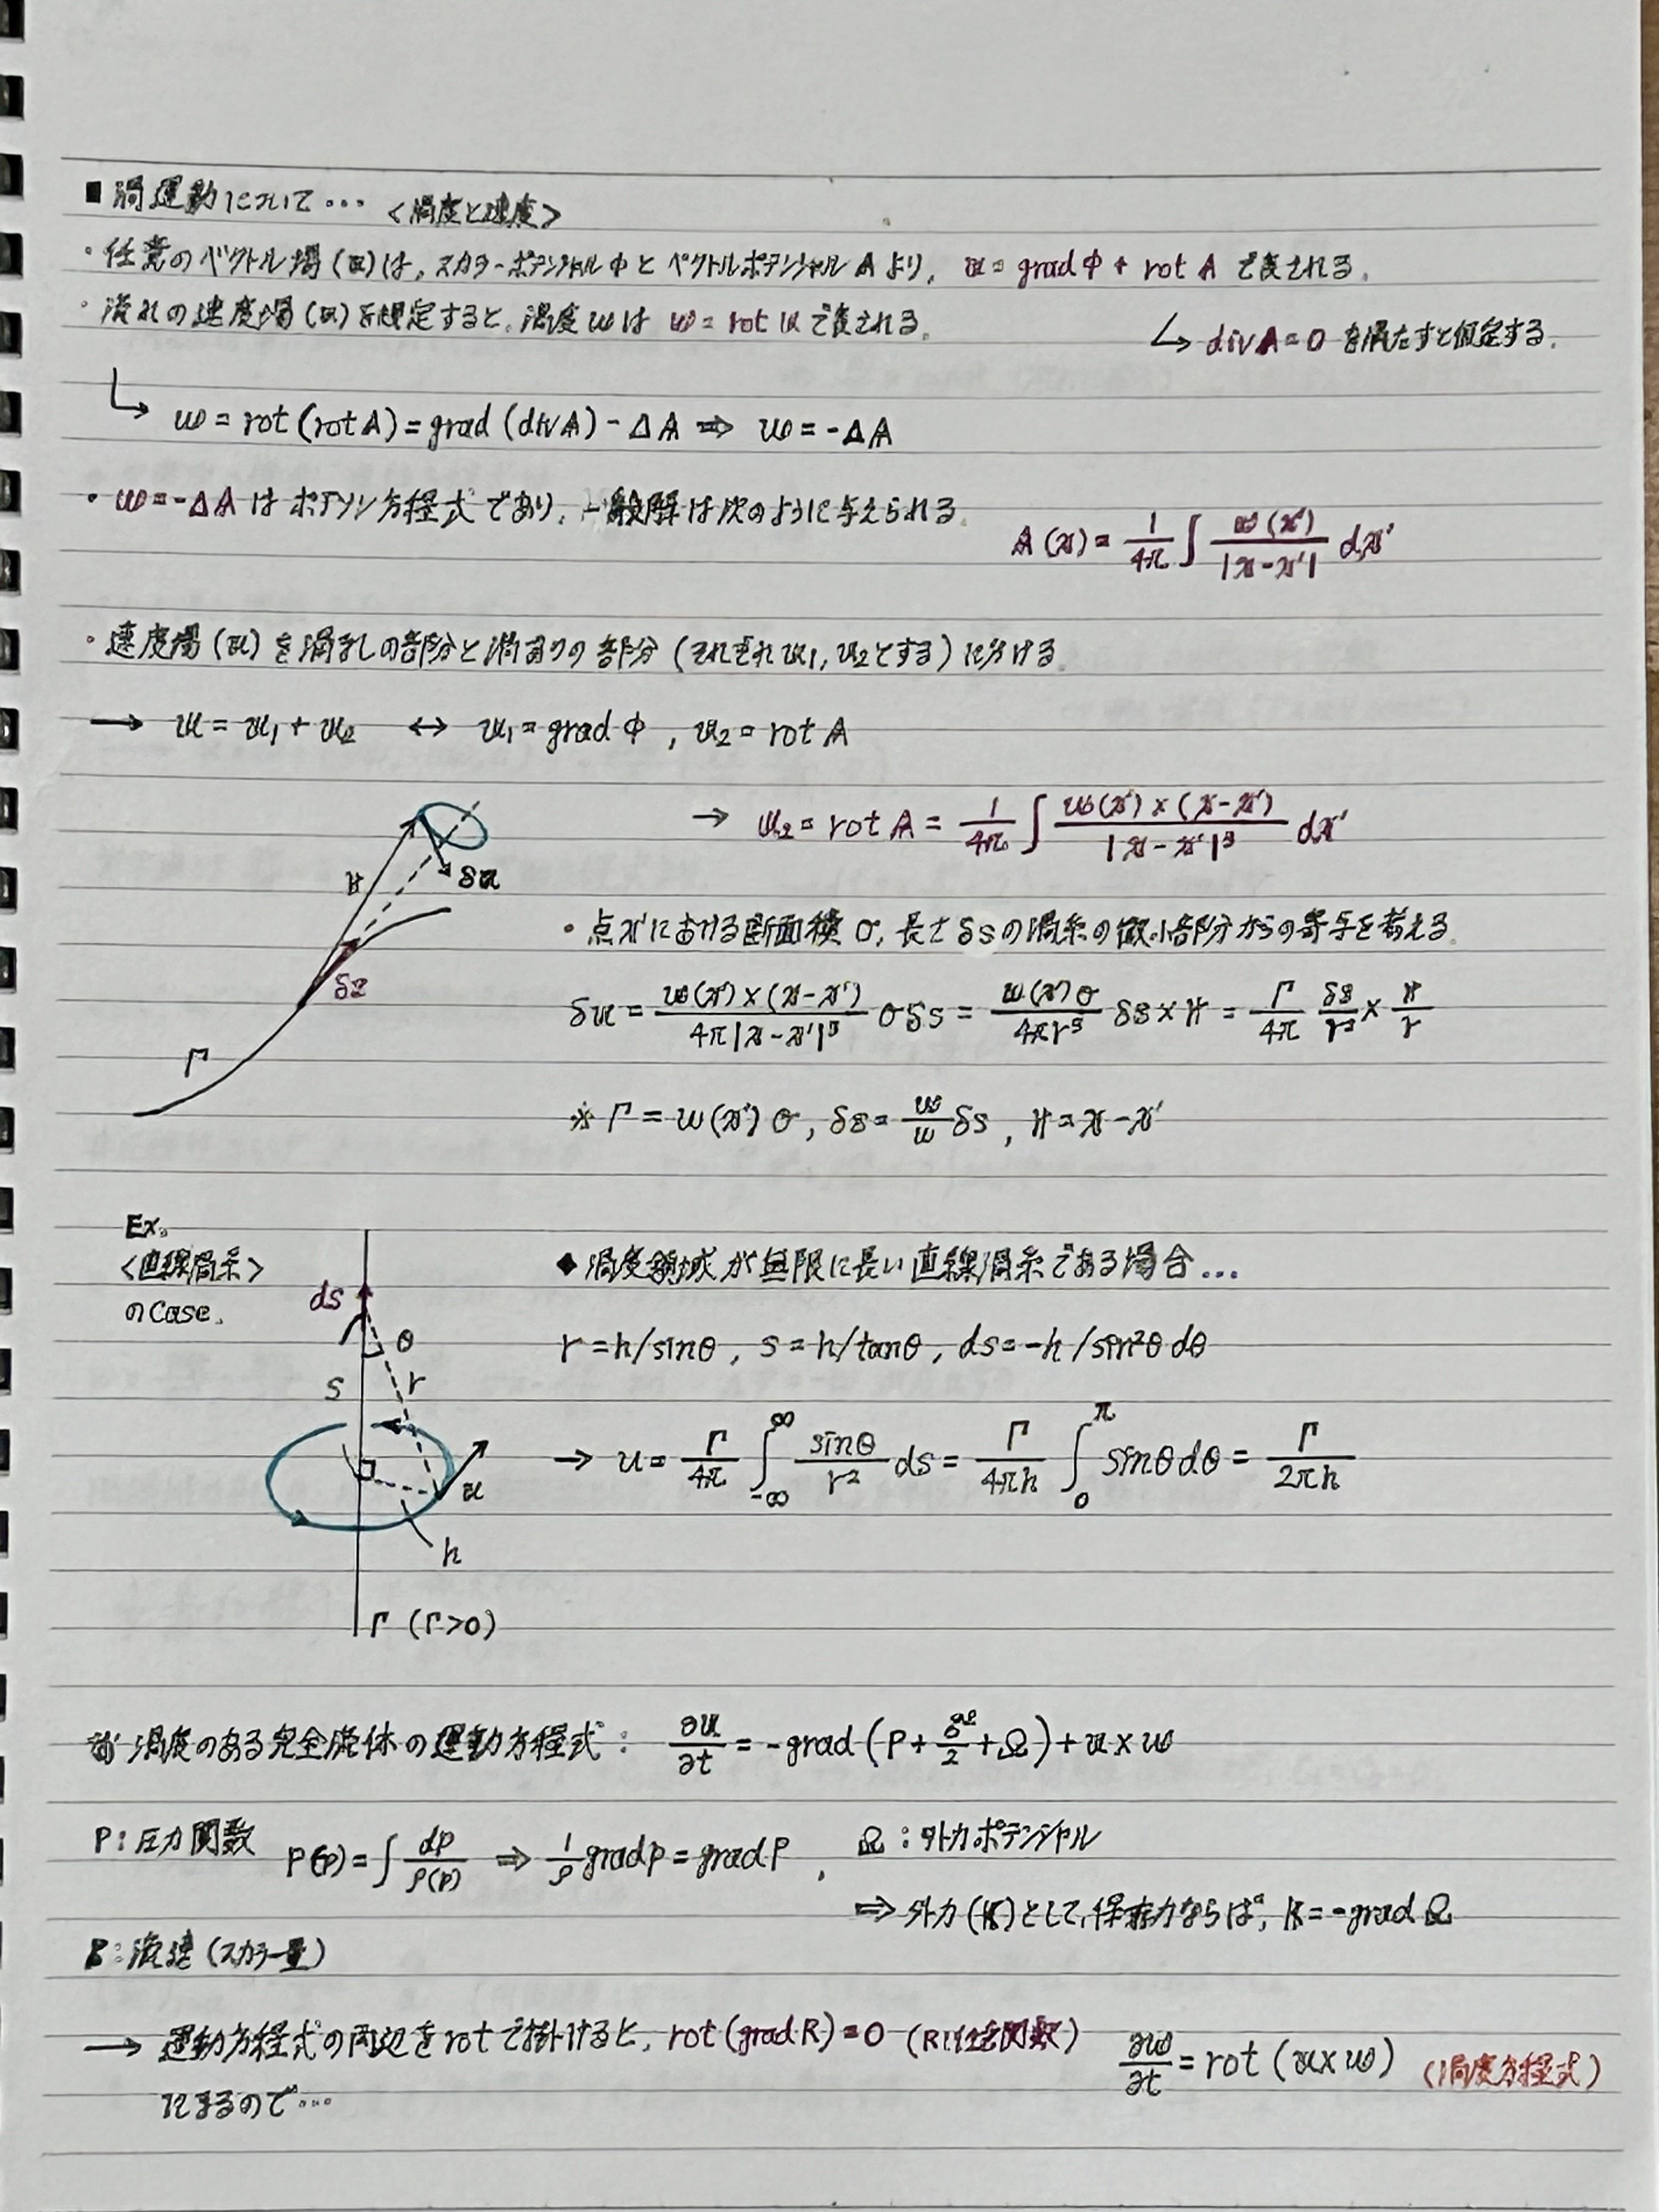 ■ 渦運動について… <渦度と速度>
・任意のベクトル場(u)は,スカラーポテンシャルΦとベクトルポテンシャルAより, u = gradΦ + rot A で表される。
・流れの速度場(u)を規定すると,渦度ωは ω = rot u で表される。
↳ divA = 0 を満たすと仮定する。
↳ ω = rot(rotA) = grad(divA) - ΔA ⇒ ω = -ΔA
・ω = -ΔA はポアソン方程式であり,一般解は次のように与えられる。
A(x) = 1/4π ∫ ω(x')/|x-x'| dx'
・速度場(u)を渦なしの部分と渦ありの部分(それぞれu₁, u₂とする)に分ける。
→ u = u₁ + u₂ ↔ u₁ = gradΦ, u₂ = rot A
→ u₂ = rot A = 1/4π ∫ ω(x')×(x-x')/|x-x'|³ dx'
r
δu
δs
Γ
・点x'における断面積σ, 長さδsの渦糸の微小部分からの寄与を考える。
δu = ω(x')×(x-x')/4π|x-x'|³ σδs = ω(x')σ/4πr³ δs×r = Γ/4π δs/r² × r/r
※ Γ = ω(x')σ, δs = ω/ω δs, r = x-x'
Ex.
<直線渦糸>
のCase.
ds
θ
s
r
u
h
Γ (Γ>0)
◆ 渦度領域が無限に長い直線渦糸である場合…
r = h/sinθ, s = h/tanθ, ds = -h/sin²θ dθ
→ u = Γ/4π ∫_{-∞}^{∞} sinθ/r² ds = Γ/4πh ∫_0^π sinθdθ = Γ/2πh
渦度のある完全流体の運動方程式: ∂u/∂t = -grad(P + /2 + Ω) + u×ω
P:圧力関数 P(p) = ∫ dp/ρ(p) ⇒ 1/ρ gradp = gradP,
Ω:外力ポテンシャル
⇒ 外力(K)として,保存力ならば, K = -grad Ω
:流速(スカラー量)
→ 運動方程式の両辺をrotで掛けると, rot(grad R) = 0 (Rは任意関数)
になるので…
∂ω/∂t = rot(u×ω) (渦度方程式)